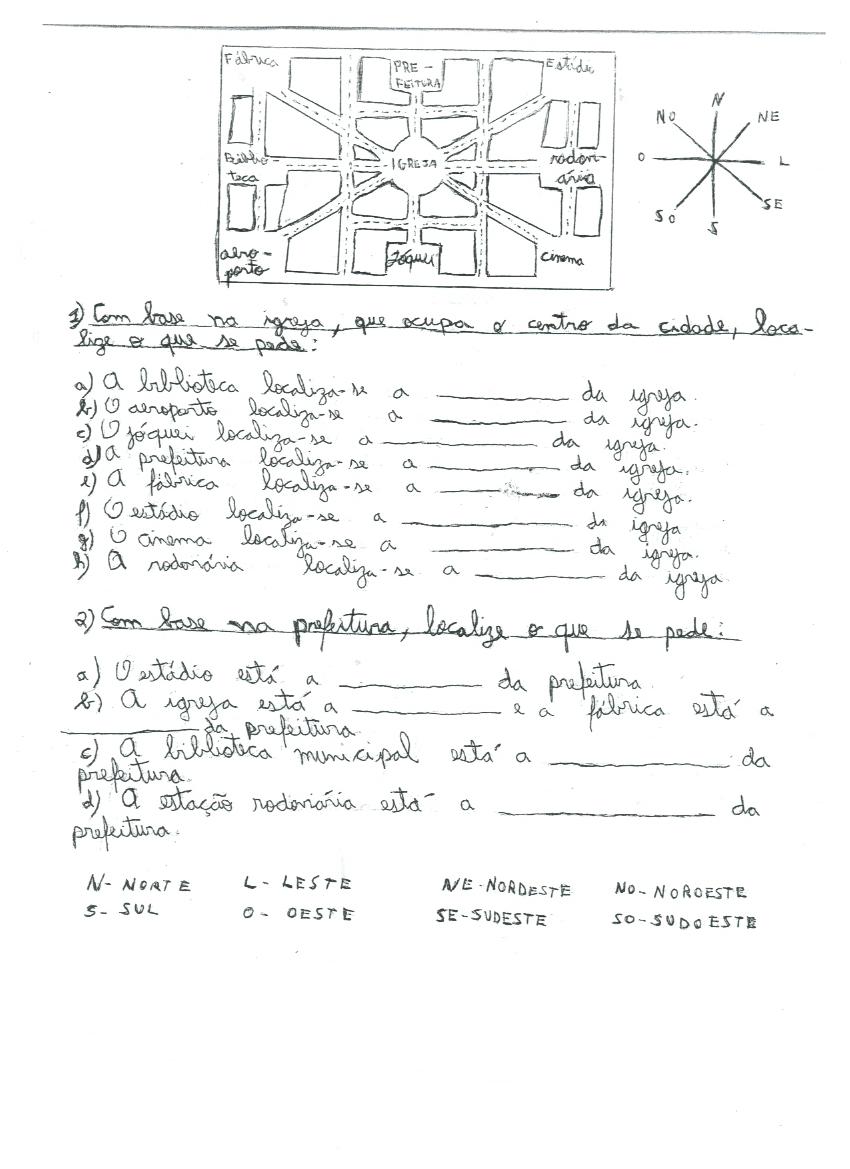 Fábrica
PRE-
FEITURA
Estádi
N
NO
NE
Biblio
teca
IGREJA
rodovi-
ária
O
L
SO
SE
S
aero-
porto
Jóquei
cinema
1) Com base na igreja, que ocupa o centro da cidade, loca-
lize o que se pede:
a) A biblioteca localiza-se a __________ da igreja.
b) O aeroporto localiza-se a __________ da igreja.
c) O jóquei localiza-se a __________ da igreja.
d) A prefeitura localiza-se a __________ da igreja.
e) A fábrica localiza-se a __________ da igreja.
f) O estádio localiza-se a __________ da igreja
g) O cinema localiza-se a __________ da igreja.
h) A rodoviária localiza-se a __________ da igreja
2) Com base na prefeitura, localize o que se pede:
a) O estádio está a __________ da prefeitura
b) A igreja está a __________ e a fábrica está a
__________ da prefeitura.
c) A biblioteca municipal está a __________ da
prefeitura.
d) A estação rodoviária está a __________ da
prefeitura.
N- NORTE L- LESTE NE-NORDESTE NO-NOROESTE
S- SUL O- OESTE SE-SUDESTE SO-SUDOESTE